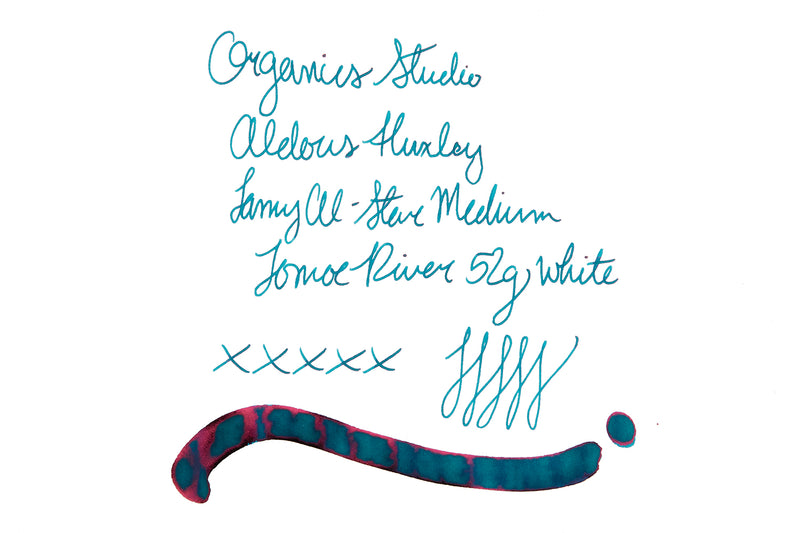 Organics Studio
Aldous Huxley
Lamy Al-Steve Medium
Tomoe River 52g, White
xxxxx